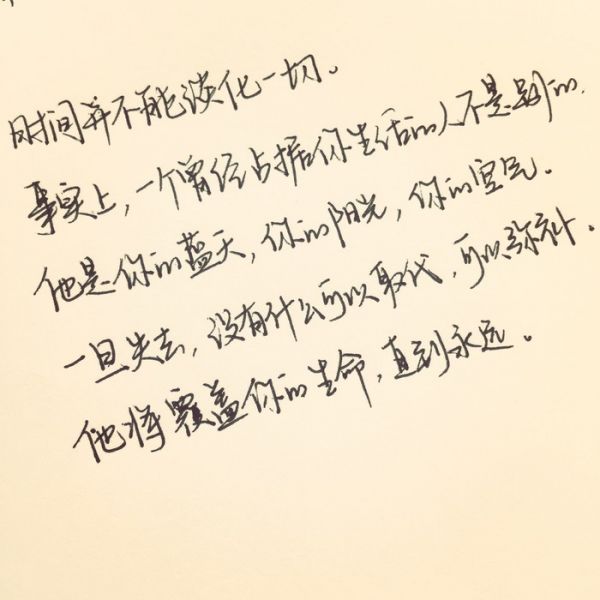 时间并不能淡化一切。
事实上，一个曾经占据你生活的人不是别的.
他是你的蓝天，你的阳光，你的空气.
一旦失去，没有什么可以取代，可以弥补.
他将覆盖你的生命，直到永远。